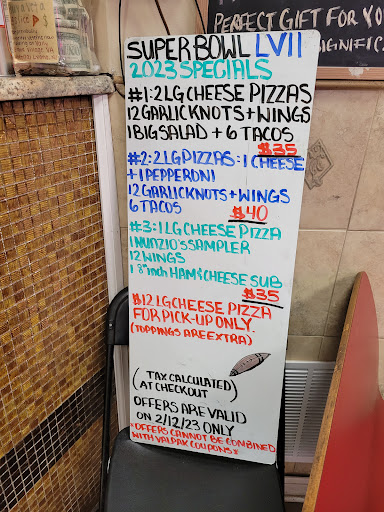 PERFECT GIFT FOR YO
SIGNIFIC
SUPER BOWL LVII
2023 SPECIALS
#1: 2 LG CHEESE PIZZAS
12 GARLIC KNOTS + WINGS
1 BIG SALAD + 6 TACOS
$35
#2: 2 LG PIZZAS: 1 CHEESE
+ 1 PEPPERONI
12 GARLIC KNOTS + WINGS
6 TACOS $40
#3: 1 LG CHEESE PIZZA
1 NUNZIO'S SAMPLER
12 WINGS
1 8" inch HAM & CHEESE SUB
$35
$12 LG CHEESE PIZZA
FOR PICK-UP ONLY.
(TOPPINGS ARE EXTRA)
(TAX CALCULATED
AT CHECKOUT)
OFFERS ARE VALID
ON 2/12/23 ONLY
*OFFERS CANNOT BE COMBINED
WITH VALPAK COUPONS*